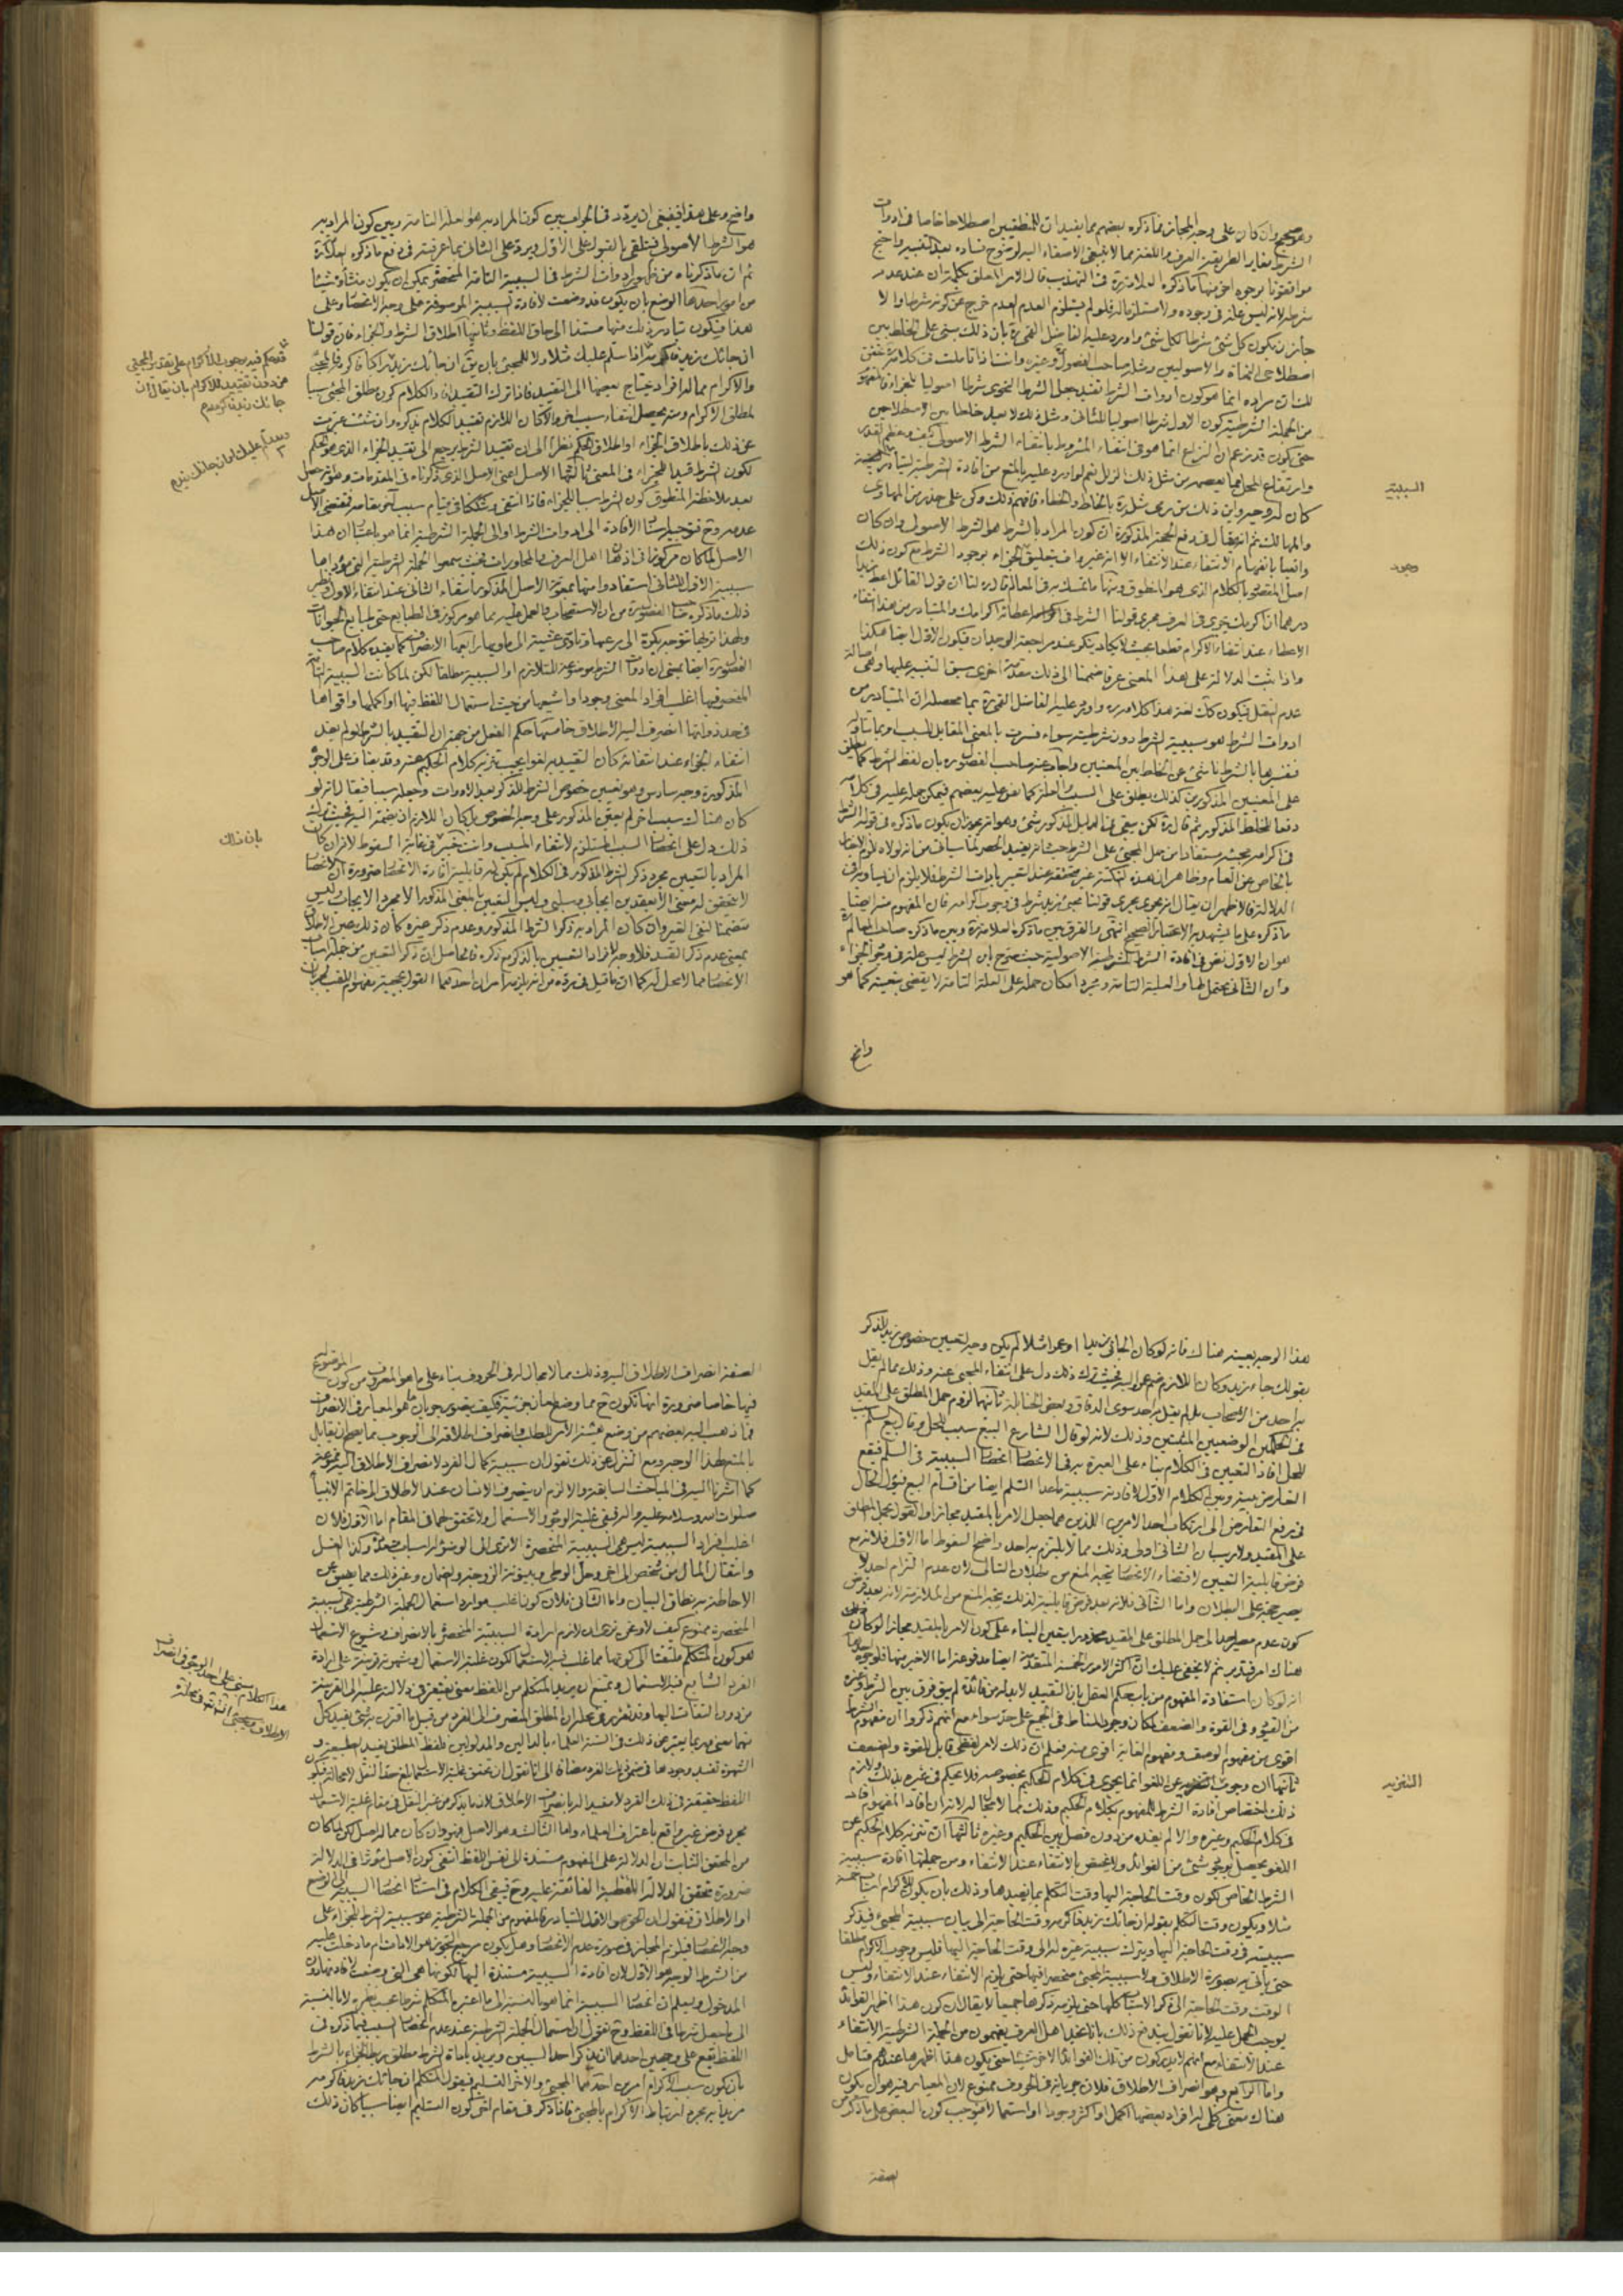 وهو صحيح وان كان على وجه المجاز فما ذكره بعضهم مما يفيد ان للمنطقيين اصطلاحا خاصا فى ادوات
الشرط مغاير الطريقة العرف واللغة مما لا ينبغى الاصغاء اليه لوضوح فساده بعد التغيير واحتج
موافقونا بوجوه اخر منها ما ذكره العلامة ره فى التهذيب قال الامر المعلق بكلمة ان عند عدم
شرطه لانه ليس علة فى وجوده ولا مستلزما له فلو لم يستلزم العدم لعدم خرج عن كونه شرطا والا
جاز ان يكون كل شئ شرطا لكل شئ واورد عليه الفاضل القمى ره بان ذلك مبنى على الخلط بين
اصطلاحى النحاة والاصوليين ومثله صاحب الفصول وغيره وانت اذا تاملت فى كلامه
لك ان مراده انما هو كون ادوات الشرط تفيد جعل الشرط النحوى شرطا اصوليا للجزاء
من الجملة الشرطية كون الاول شرطا اصوليا للثانى ومثل ذلك لا يعد خلطا بين الاصطلاحين
حتى يكون قد زعم ان النزاع انما هو فى انتفاء المشروط بانتفاء الشرط الاصولى كيف
وارتفاع المحل مما يعصمه من مثل ذلك الزلل نعم لو اورد عليه بالمنع من افادة الشرطية
كان له وجه واين ذلك من رمى مثله ره بالخلط والخطاء فافهم ذلك وكن على حذر من المهاوى
والمهالك ثم انه يقال فى دفع الحجة المذكورة ان كون المراد بالشرط هو الشرط الاصولى وان كان
وافيا بانفهام الانتفاء عند الانتفاء الا انه غير واف بتعليق الجزاء بوجود الشرط مع كون ذلك
اصل المقصود بالكلام الذى هو المنطوق ومنها ما تمسك به فى المعالم قال ره لنا ان قول القائل اعط زيدا
درهما ان اكرمك يجرى فى العرف مجرى قولنا الشرط فى اعطائه اكرامك والمتبادر من هذا انتفاء
الاعطاء عند انتفاء الاكرام قطعا بحيث لا يكاد ينكر عند مراجعة الوجدان فيكون الاول ايضا هكذا
واذا ثبت الدلالة على هذا المعنى عرفا ضممنا الى ذلك مقدمة اخرى سبق التنبيه عليها وهى اصالة
عدم النقل فيكون كذلك لغة هذا كلامه ره واورد عليه الفاضل القمى ره بما محصله ان المتبادر من
ادوات الشرط هو سببية الشرط دون شرطيته سواء فسرت بالمعنى المقابل للسبب او بما يتناوله
فتفسيرها بالشرط ناشئ عن الخلط بين المعنيين واجاب عنه صاحب الفصول ره بان لفظ الشرط كما يطلق
على المعنيين المذكورين كذلك يطلق على السبب والعلة كما نص عليه بعضهم فيمكن حمله عليه فى كلامه
دفعا للخلط المذكور ثم قال ره لكن يبقى فى الدليل المذكور شئ وهو انه يجوز ان يكون ما ذكره فى قوله الشرط
فى اكرامه مجيئه مستفادا من حمل المجئ على الشرط حيث انه يفيد الحصر لما سياتى من انه لولاه للزم الاخبار
بالخاص عن العام وظاهر ان هذه النكتة غير متحققة عند التعبير باداة الشرط فلا يلزم ان يساويه فى
الدلالة فالاظهر ان يقال انه يجرى مجرى قولنا مجئ زيد شرط فى وجوب اكرامه فان المفهوم منه ايضا
ما ذكره على ما يشهد به الاعتبار الصحيح انتهى والفرق بين ما ذكره العلامة ره وبين ما ذكره صاحب المعالم ره
هو ان الاول نص فى افادة الشرط للشرطية الاصولية حيث صرح بان الشرط ليس علة فى وجود الجزاء
وان الثانى يحتمل لها وللعلية التامة ومجرد امكان حمله على العلة التامة لا يقضى بتعينه كما هو
واضح
السببية
وجود
واضح وعلى هذا فينبغى ان يردد فى الجواب بين كون المراد به هو العلة التامة وبين كون المراد به
هو الشرط الاصولى فيتلقى بالقبول على الاول ويرد على الثانى بما عرفته فى دفع ما ذكره العلامة ره
ثم ان ما ذكرناه من ظهور ادوات الشرط فى السببية التامة المنحصرة يمكن ان يكون منشأه شيئا
من امور احدها الوضع بان يكون قد وضعت لافادة السببية الموصوفة على وجه الانحصار وعلى
هذا فيكون تبادر ذلك منها مستندا الى حاق اللفظ وثانيها اطلاق الشرط والجزاء فان قولنا
ان جائك زيد فاكرمه
والاكرام مما له افراد يحتاج تعيينها الى التقييد فاذا ترك التقييد افاد الكلام كون مطلق المجئ سببا
لمطلق الاكرام ومنه يحصل انتفاء سبب اخر والا لكان اللازم تقييد الكلام بذكره وان شئت عبرت
عن ذلك باطلاق الجزاء او اطلاق الحكم نظرا الى ان تقييد الشرط يرجع الى تقييد الجزاء الذى هو الحكم
لكون الشرط قيدا للجزاء فى المعنى ثالثها الاصل اعنى الاصل الذى ذكرناه فى المقدمات
بعد ملاحظة المنطوق كون الشرط سببا للجزاء فاذا انتفى وشككنا فى قيام سبب اخر مقامه فمقتضى الاصل
عدمه وح فتوجيه اسناد الافادة الى ادوات الشرط او الى الجملة الشرطية انما هو باعتبار ان هذا
الاصل لما كان مركوزا فى اذهان اهل العرف والمحاورات بحيث سمعوا الجملة الشرطية التى مؤداها
سببية الاول للثانى استفادوا منها بمعونة الاصل المذكور انتفاء الثانى عند انتفاء الاول نظير
ذلك ما ذكره صاحب الفصول ره من ان الاستصحاب والعمل عليه مما هو مركوز فى الطبايع حتى طبايع الحيوانات
ولهذا تريها تتوجه بكرة الى مرعيها وتاوى عشية الى ماويها رابعها الانصراف كما يفيده كلام صاحب
الفصول ره ايضا بمعنى ان ادوات الشرط موضوعة للتلازم او السببية مطلقا لكن لما كانت السببية التامة
المنحصرة فيها اغلب افراد المعنى وجودا واشيعها من حيث استعمال اللفظ فيها او اكملها واقواها
فى حد ذواتها انصرف اليه الاطلاق خامسها حكم العقل من جهة ان التقييد بالشرط لو لم يفد
انتفاء الجزاء عند انتفائه كان التقييد به لغوا يجب تنزيه كلام الحكيم عنه وقد يضاف على الوجوه
المذكورة وجه سادس وهو تعيين خصوص الشرط المذكور بعد الادوات وجعله سببا فيقال انه لو
كان هناك سبب اخر لم يتعين المذكور على وجه الخصوص بل كان اللازم ان يضمه اليه فحيث ترك
ذلك دل على انحصار السبب المستلزم لانتفاء المسبب وانت خبير فى غاية السقوط لانه ان كان
المراد بالتعيين مجرد ذكر الشرط المذكور فى الكلام لم يكن له قابلية افادة الانحصار ضرورة ان الانحصار
لا يتحقق له معنى الا بعقدين ايجابى وسلبى وليس التعيين بالمعنى المذكور الا مجرد الايجاب وليس
متضمنا لنفى الغير وان كان المراد به ذكر الشرط المذكور وعدم ذكر غيره كان ذلك عين الاطلاق
بمعنى عدم ذكر القيد فلا وجه لافراد التعيين بالذكر مع ذكره فالحاصل ان ذكر التعيين من جملة اسباب
الانحصار مما لا محل له كما ان ما قيل فى رده من انه يلزمه امران احدهما القول بحجية مفهوم اللقب لجريان
فيحكم فيه بوجوب الاكرام على تقدير المجئ
من دون تقييد للاكرام بان يقال ان
جائك زيد فاكرمه
بان ذلك
هذا الوجه بعينه هناك فانه لو كان الجائى زيدا او عمرا مثلا لم يكن وجه لتعيين خصوص زيد بالذكر
بقولك جاء زيد وكان اللازم ضم عمرو اليه فحيث ترك ذلك دل على انتفاء المجئ عنه وذلك مما لم يقل
به احد من الاصحاب بل لم يقل به احد سوى الدقاق وبعض الحنابلة ثانيهما لزوم حمل المطلق على المقيد
فى الحكمين الوضعيين المثبتين وذلك لانه لو قال الشارع البيع سبب للحل وقال بيع السلم سبب
للحل افاد التعيين فى الكلام بناء على العبرة به فى الانحصار انحصار السببية فى السلم فيقع
التعارض بينه وبين الكلام الاول لافادته سببية ما عدا السلم ايضا من اقسام البيع فيؤل الحال
فى رفع التعارض الى ارتكاب احد الامرين اللذين هما جعل الامر بالمقيد مجازا والقول بحمل المطلق
على المقيد ولا ريب ان الثانى اولى وذلك مما لا يلتزم به احد واضح السقوط اما الاول فلانه مع
فرض قابلية التعيين لاقتضاء الانحصار يتجه المنع من بطلان التالى لان عدم التزام احد لا
يصير حجة على البطلان واما الثانى فلانه بعد فرض قابليته لذلك يتجه المنع من الملازمة لانه بعد فرض
كون عدم مصير احد الى حمل المطلق على المقيد محذورا يتعين البناء على كون الامر بالمقيد مجازا
هناك امر فتدبر ثم لا يخفى عليك ان اكثر الامور الخمسة المتقدمة ايضا مدفوعة اما الاخير منها فلوجوه احدها
انه لو كان استفادة المفهوم من باب حكم العقل بان التقييد لا بد له من فائدة لم يبق فرق بين الشرط وغيره
من القيود فى القوة والضعف لمكان وجود المناط فى الجميع على حد سواء مع انهم ذكروا ان مفهوم الشرط
اقوى من مفهوم الوصف ومفهوم الغاية اقوى منه فعلم ان ذلك لامر لفظى قابل للقوة والضعف
ثانيها ان وجوب التنزيه عن اللغو انما يجرى فى كلام الحكيم بخصوصه فلا يحكم فى غيره بذلك ولازم
ذلك اختصاص افادة الشرط للمفهوم بكلام الحكيم وذلك مما لا مجال له لانه ان افاد المفهوم افاد
فى كلام الحكيم وغيره والا لم يفده من دون فصل بين الحكيم وغيره ثالثها ان تنزيه كلام الحكيم عن
اللغو يحصل بوجود شئ من الفوائد ولا يختص بالانتفاء عند الانتفاء ومن جملتها افادة سببية
الشرط الخاص لكون وقت الحاجة اليها وقت التكلم بما يفيدها وذلك بان يكون للاكرام اسباب خمسة
مثلا ويكون وقت التكلم بقوله ان جائك زيد فاكرمه وقت الحاجة الى بيان سببية المجئ فيذكر
سببيته فى وقت الحاجة اليها ويترك سببية غيره له الى وقت الحاجة اليها فليس وجوب الاكرام مطلقا
حتى ياتى به بصورة الاطلاق ولا سببية المجئ منحصرا فيها حتى يلزم الانتفاء عند الانتفاء وليس
الوقت وقت الحاجة الى ذكر الاسباب كلها حتى يلزمه ذكرها جميعا لا يقال ان كون هذا اظهر الفوائد
يوجب الحمل عليه لانا نقول يندفع ذلك بانا نجد اهل العرف يفهمون من الجملة الشرطية الانتفاء
عند الانتفاء مع انهم لا يدركون من تلك الفوائد الاخر شيئا حتى يكون هذا اظهرها عندهم فتامل
واما الرابع وهو انصراف الاطلاق فلان جريانه فى الحروف ممنوع لان المعيار فيه هو ان يكون
هناك معنى كلى له افراد بعضها اكمل او اكثر وجودا او استعمالا فيوجب كون البعض على ما ذكر من
الصفة
التنزيه
الصفة انصراف الاطلاق اليه وذلك مما لا مجال له فى الحروف بناء على ما هو المعروف من كون الموضوع له
فيها خاصا ضرورة انها تكون ح مما وضع لمعان جزئية فكيف يتصور جريان ما هو المعيار فى الانصراف
فما ذهب اليه بعضهم من وضع هيئة الامر للطلب وانصراف اطلاقه الى الوجوب مما يصح ان يقابل
بالمنع لهذا الوجه ومع التنزل عن ذلك نقول ان سببية كمال الفرد لانصراف الاطلاق اليه ممنوعة
كما اشرنا اليه فى المباحث السابقة والا لزم ان ينصرف الانسان عند الاطلاق الى خاتم الانبياء
صلوات الله وسلامه عليه واله فبقى غلبة الوجود والاستعمال ولا تحقق لهما فى المقام اما الاول فلان
اغلب افراد السببية ليس هى السببية المنحصرة الا ترى ان الوضوء له اسباب متعددة وكذا الغسل
وانتقال المال من شخص الى اخر وحل الوطى وبينونة الزوجة والضمان وغير ذلك مما يضيق عن
الاحاطة به نطاق البيان واما الثانى فلان كون اغلب موارد استعمال الجملة الشرطية هى السببية
المنحصرة ممنوع كيف لا وغن نرى ان لازم ارادة السببية المنحصرة بالانصراف وشيوع الاستعمال
هو كون المتكلم ملتفتا الى كونها مما غلب فيه الاستعمال لكون غلبة الاستعمال وشهرته قرينة على ارادة
الفرد الشايع فيه الاستعمال ويمتنع ان يريد المتكلم من اللفظ معنى يفتقر فى دلالته عليه الى القرينة
من دون التفات اليها وقد تقرر فى محله ان المطلق المنصرف الى الفرد من قبيل ما اقترن بشئ يفيد كل
منهما معنى وربما يعبر عن ذلك فى السنة العلماء بالدالين والمدلولين فلفظ المطلق يفيد الطبيعة و
الشهرة تفيد وجودها فى ضمن ذلك الفرد مضافا الى انا نقول ان تحقق غلبة الاستعمال بلغ حد النقل لا محالة فيكون
اللفظ حقيقة فى ذلك الفرد لا مفيدا له بانصراف الاطلاق
مجرد فرض غير واقع باعتراف العلماء واما الثالث وهو الاصل فهو وان كان مما له اصل لكن لما كان
من المحقق الثابت ان الدلالة على المفهوم مستندة الى نفس اللفظ انتفى كون الاصل مؤثرا فى الدلالة
ضرورة تحقق الدلالة اللفظية الفائقة عليه وح فيبقى الكلام فى استناد انحصار السببية الى الوضع
او الاطلاق فنقول ان الحق هو الاول للتبادر فالمفهوم من الجملة الشرطية هو سببية الشرط للجزاء على
وجه الانحصار فيلزم المجاز فى صورة عدم الانحصار وهل يكون مرجع التجوز هو الادات ام ما دخلت عليه
من الشرط الوجه هو الاول لان افادة السببية مستندة اليها لكونها هى التى وضعت لافادتها دون
المدخول وليعلم ان انحصار السببية انما هو بالنسبة الى ما اعتبره المتكلم شرطا بحسب نظره لا بالنسبة
الى ما جعل شرطا فى اللفظ وح نقول ان استعمال الجملة الشرطية عند عدم انحصار السبب فيما ذكره فى
اللفظ يقع على وجهين احدهما ان يذكر احد السببين ويريد باداة الشرط مطلق ربط الجزاء بالشرط
بان يكون سبب الاكرام امرين احدهما المجئ والاخر التسليم فيقول المتكلم ان جائك زيد فاكرمه
مريدا به مجرد ارتباط الاكرام بالمجئ فاذا ذكر فى مقام اخر كون التسليم ايضا سببا كان ذلك
هذا الكلام مبنى على اخذ الوجود فى انصراف